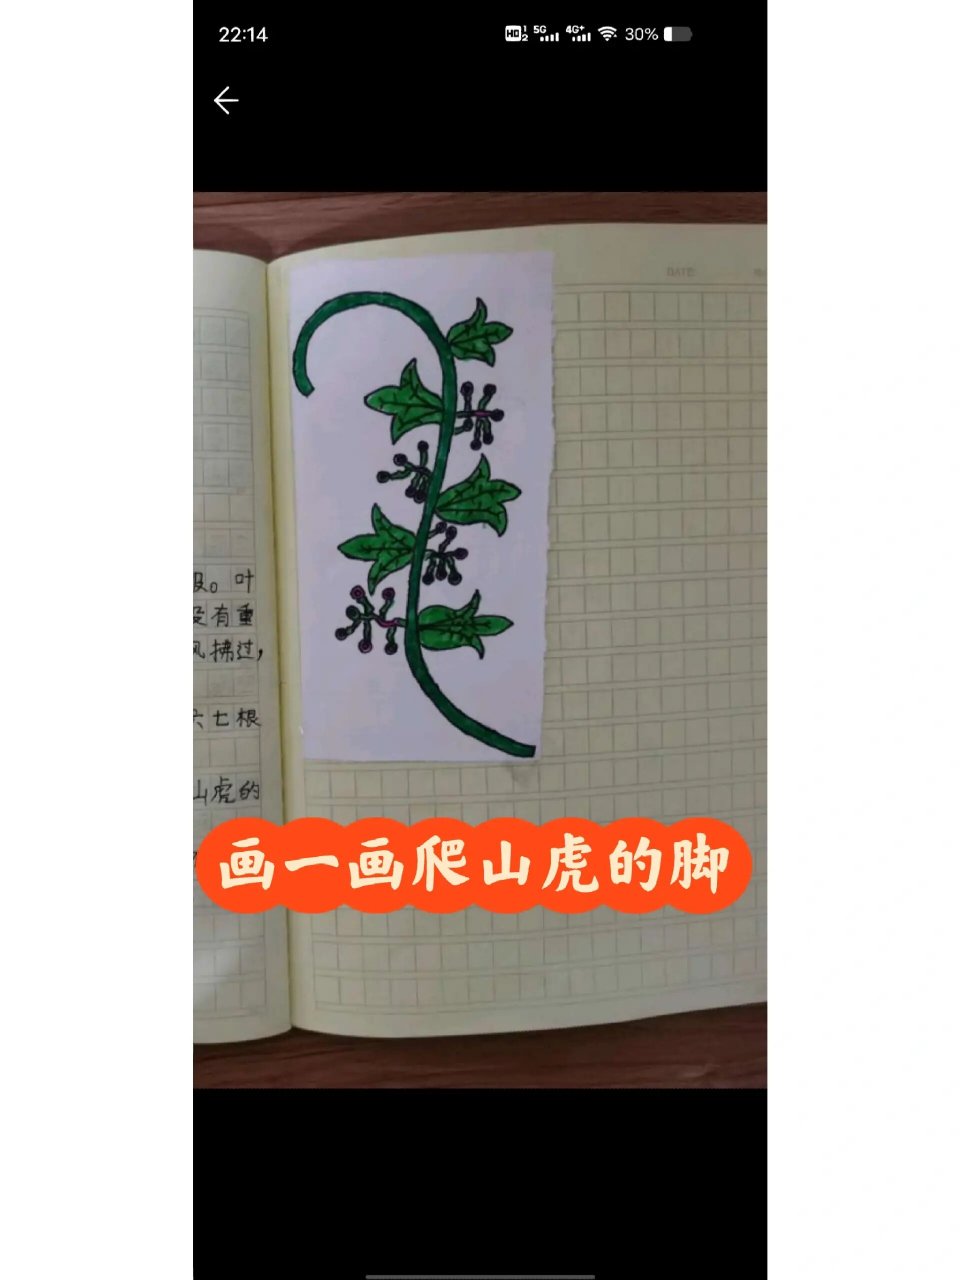 22:14
HD 1 2 5G 4G+ 30%
DATE
。叶
没有重
风拂过，
六七根
山虎的
画一画爬山虎的脚